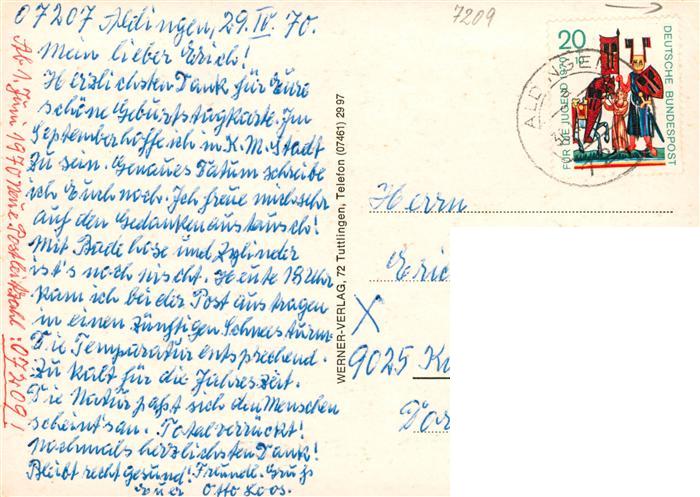 07207 Aldingen, 29. IV. 70.
Mein lieber Erich!
Herzlichsten Dank für Eure
schöne Geburtstagkarte. Im
September hoffe ich in K. M. Stadt
zu sein. Genaues Datum schreibe
ich Euch noch. Ich freue mich sehr
auf den Gedankenaustausch!
Mit Badehose und Zylinder
ist's noch nischt. Heute 18 Uhr
kam ich bei der Post austragen
in einen zünftigen Schneesturm.
Die Temparatur entsprechend.
Zu kalt für die Jahreszeit.
Die Natur paßt sich den Menschen
scheint's an. Total verrückt!
Nochmals herzlichsten Dank!
Bleibt recht gesund! Freundl. Gruß
Euer Otto Loos.
Ab 1. Juni 1970 neue Postleitzahl: 07209!
WERNER-VERLAG, 72 Tuttlingen, Telefon (07461) 2997
7209
20
+10
FÜR DIE JUGEND 1970
DEUTSCHE BUNDESPOST
ALDINGEN
Herrn
Eric
X
9025 K